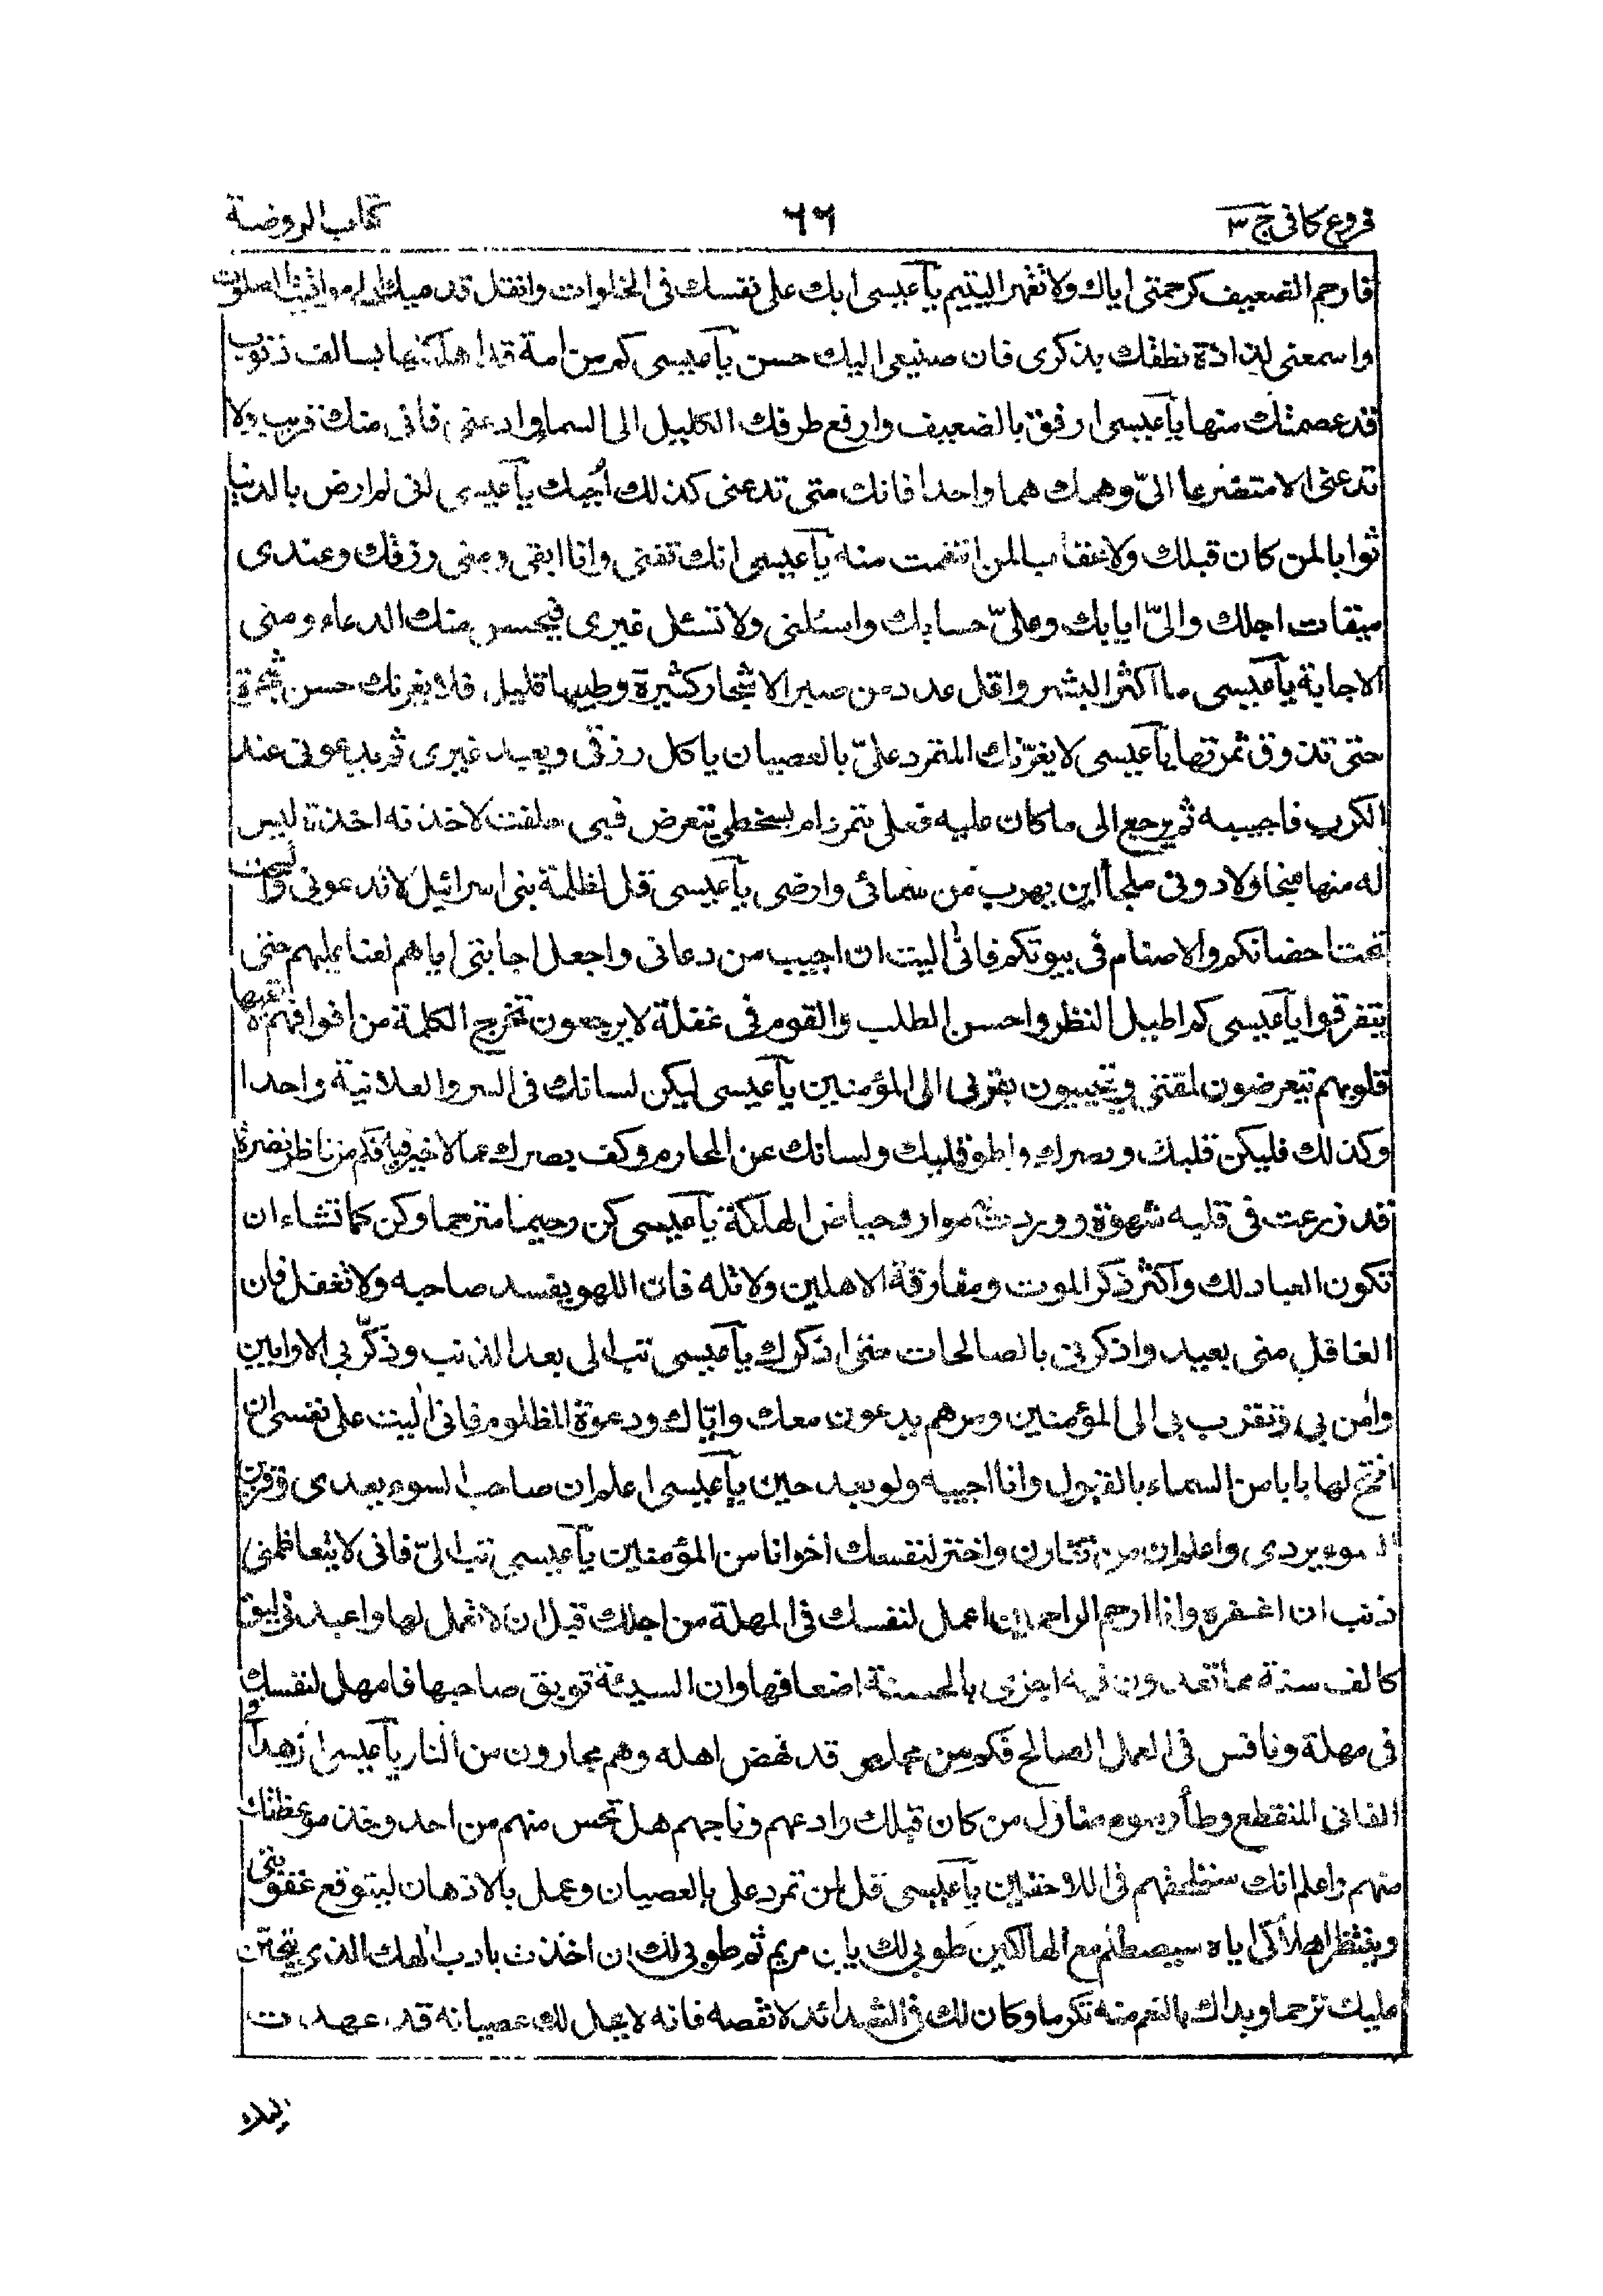 فروع كافى ج ٣
٦٦
كتاب الروضة
فارحم الضعيف كرحمتى اياك ولا تقهر اليتيم يا عيسى ابك على نفسك فى الخلوات وانقل قدميك الى مواقيت الصلوت
واسمعنى لذاذة نطقك بذكرى فان صنيعى اليك حسن يا عيسى كم من امة قد اهلكتها بسالف ذنوب
قد عصمتك منها يا عيسى ارفق بالضعيف وارفع طرفك الكليل الى السماء وادعنى فانى منك قريب ولا
تدعنى الا متضرعا الىّ وهمك هما واحدا فانك متى تدعنى كذلك اجبك يا عيسى انى لم ارض بالدنيا
ثوابا لمن كان قبلك ولا عقابا لمن انتقمت منه يا عيسى انك تفنى وانا ابقى ومنى رزقك وعندى
ميقات اجلك والىّ ايابك وعلىّ حسابك واسئلنى ولا تسئل غيرى فيحسن منك الدعاء ومنى
الاجابة يا عيسى ما اكثر البشر واقل عدد من صبر الاشجار كثيرة وطيبها قليل فلا يغرنك حسن شجرة
حتى تذوق ثمرتها يا عيسى لا يغرّنك المتمرد علىّ بالعصيان ياكل رزقى ويعبد غيرى ثم يدعونى عند
الكرب فاجيبه ثم يرجع الى ما كان عليه فعلى يتمرد ام بسخطى يتعرض فبى حلفت لاخذنه اخذة ليس
له منها منجا ولا دونى ملجأ اين يهرب من سمائى وارضى يا عيسى قل لظلمة بنى اسرائيل لا تدعونى والسحت
تحت احضانكم والاصنام فى بيوتكم فانى اليت ان اجيب من دعانى واجعل اجابتى اياهم لعنا عليهم حتى
يتفرقوا يا عيسى كم اطيل النظر واحسن الطلب والقوم فى غفلة لا يرجعون تخرج الكلمة من افواههم لا تعيها
قلوبهم يتعرضون لمقتى ويتحببون بقربى الى المؤمنين يا عيسى ليكن لسانك فى السر والعلانية واحدا
وكذلك فليكن قلبك وبصرك واطو قلبك ولسانك عن المحارم وكف بصرك عما لا خير فيه فكم من ناظر نظرة
قد زرعت فى قلبه شهوة ووردت به موارد حياض الهلكة يا عيسى كن رحيما مترحما وكن كما تشاء ان
تكون العباد لك واكثر ذكر الموت ومفارقة الاهلين ولا تله فان اللهو يفسد صاحبه ولا تغفل فان
الغافل منى بعيد واذكرنى بالصالحات حتى اذكرك يا عيسى تب الى بعد الذنب وذكّر بى الاوابين
وامن بى وتقرب بى الى المؤمنين ومرهم يدعونى معك واياك ودعوة المظلوم فانى اليت على نفسى ان
افتح لها بابا من السماء بالقبول وانا اجيبه ولو بعد حين يا عيسى اعلم ان صاحب السوء يعدى وقرين
السوء يردى واعلم ان من تقارن واختر لنفسك اخوانا من المؤمنين يا عيسى تب الىّ فانى لا يتعاظمنى
ذنب ان اغفره وانا ارحم الراحمين اعمل لنفسك فى المهلة من اجلك قبل ان لا تعمل لها واعبدنى ليوم
كالف سنة مما تعدون فيه اجزى بالحسنة اضعافها وان السيئة توبق صاحبها فامهد لنفسك
فى مهلة ونافس فى العمل الصالح فكم من مجلس قد نهض اهله وهم مجارون من النار يا عيسى ازهد فى
الفانى المنقطع وطأ رسوم منازل من كان قبلك وادعهم وناجهم هل تحس منهم من احد وخذ موعظتك
منهم واعلم انك ستلحقهم فى اللاحقين يا عيسى قل لمن تمرد على بالعصيان وعمل بالادهان ليتوقع عقوبتى
وينتظر اهلاكى اياه سيصطلم مع الهالكين طوبى لك يا بن مريم ثم طوبى لك ان اخذت بادب الهك الذى يتحنن
عليك ترحما وبداك بالنعم منه تكرما وكان لك فى الشدائد لا تعصه فانه لا يحل لك عصيانه قد عهدت
اليك